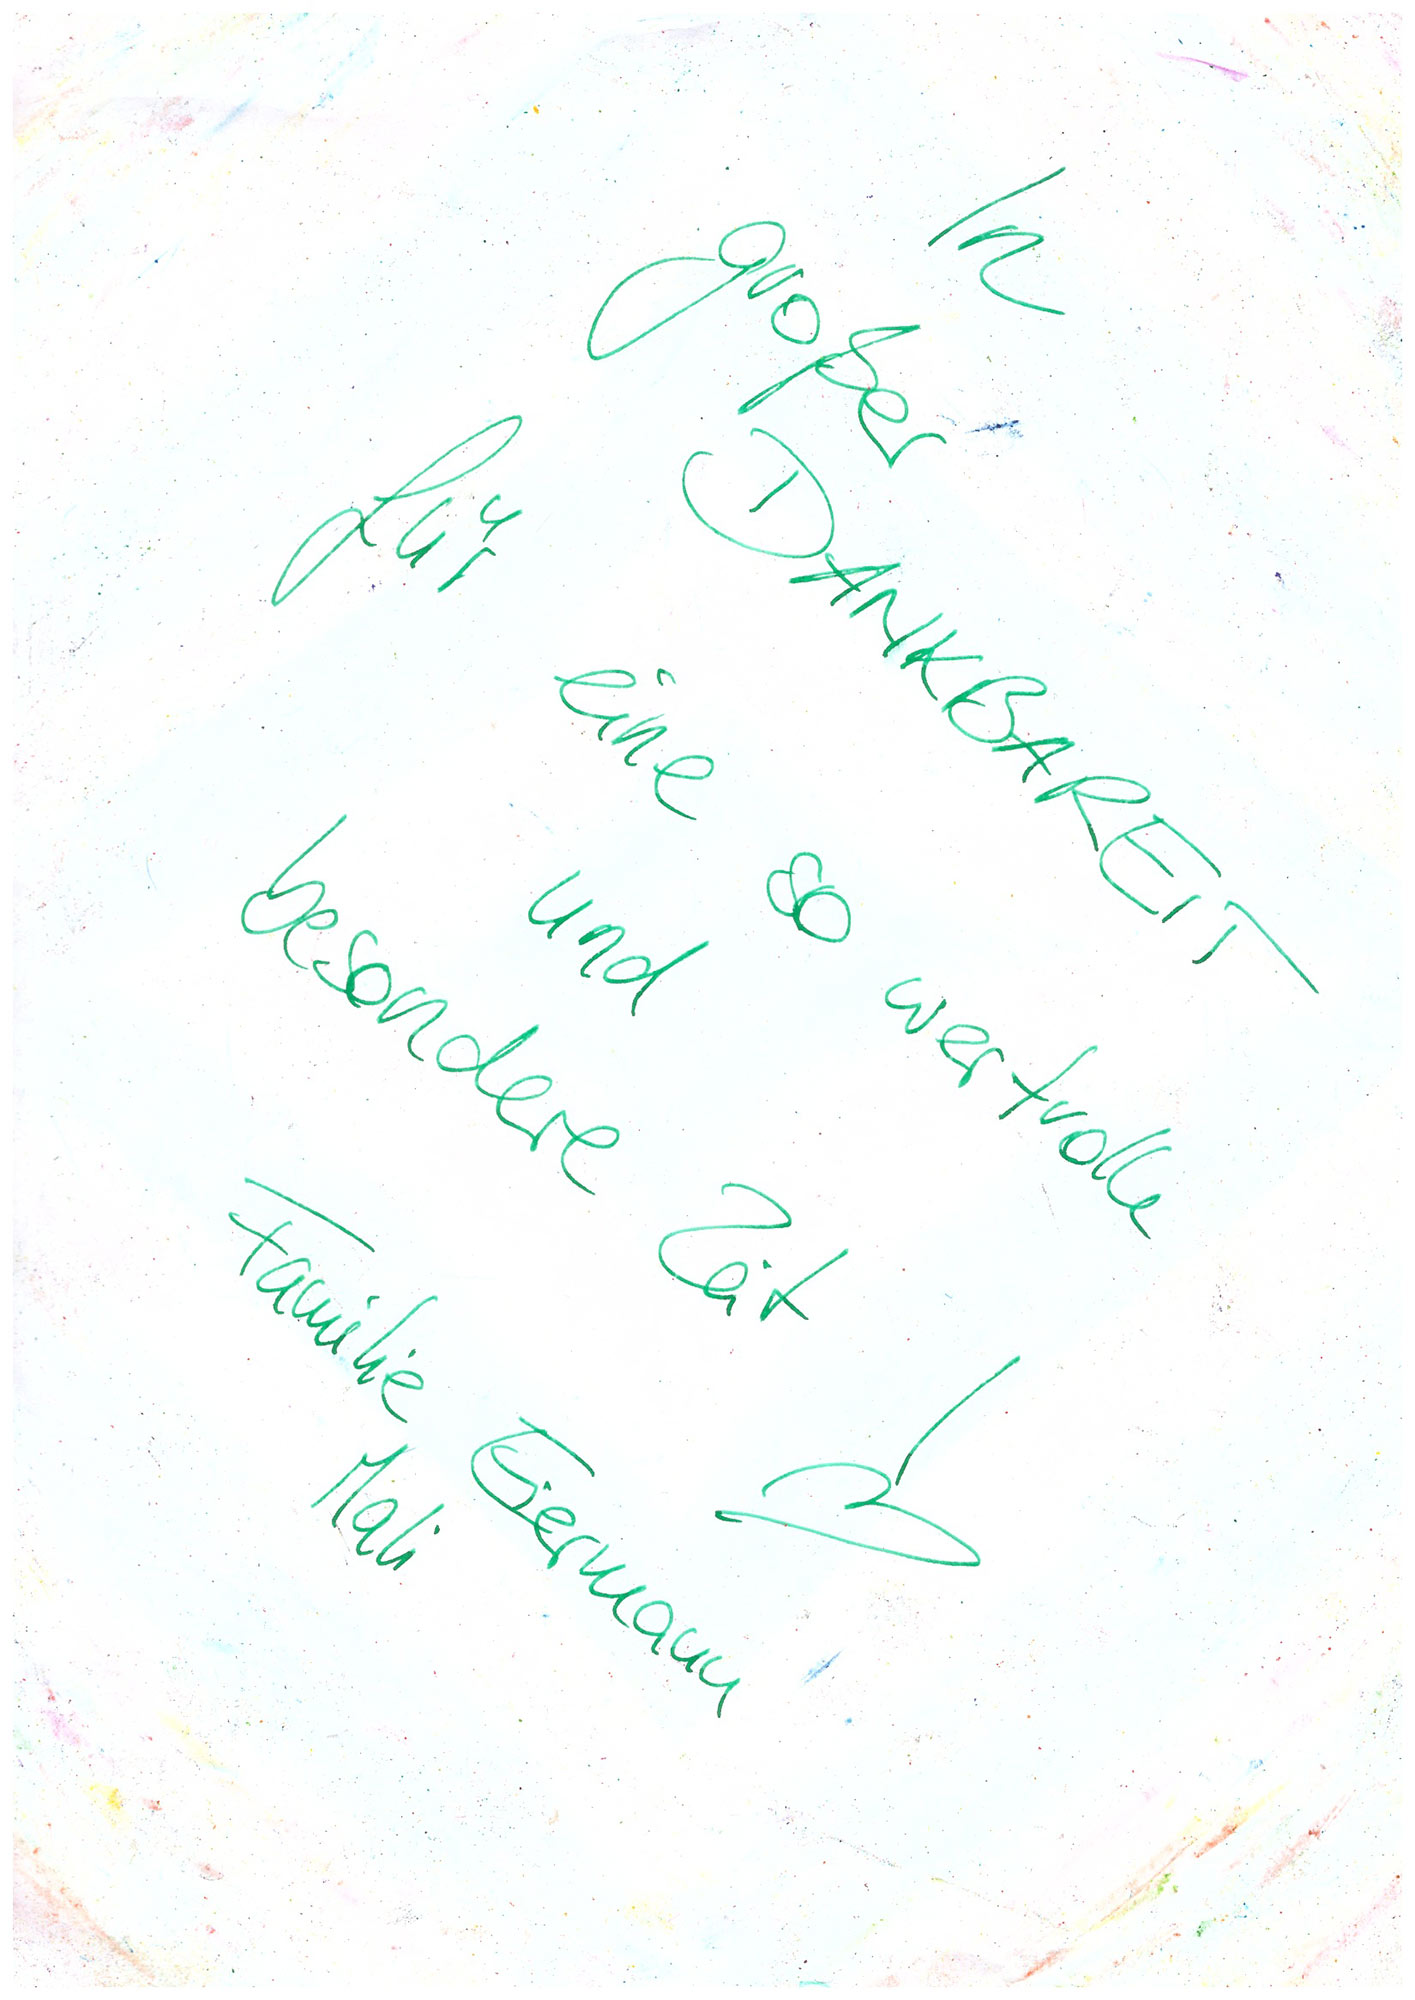 In
großer
DANKBAREIT
für
eine so wertvolle
und
besondere Zeit
Familie Eiermann
Mali